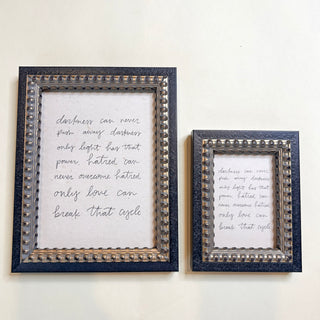 darkness can never
push away darkness
only light has that
power hatred can
never overcome hatred
only love can
break that cycle
darkness can never
push away darkness
only light has that
power hatred can
never overcome hatred
only love can
break that cycle